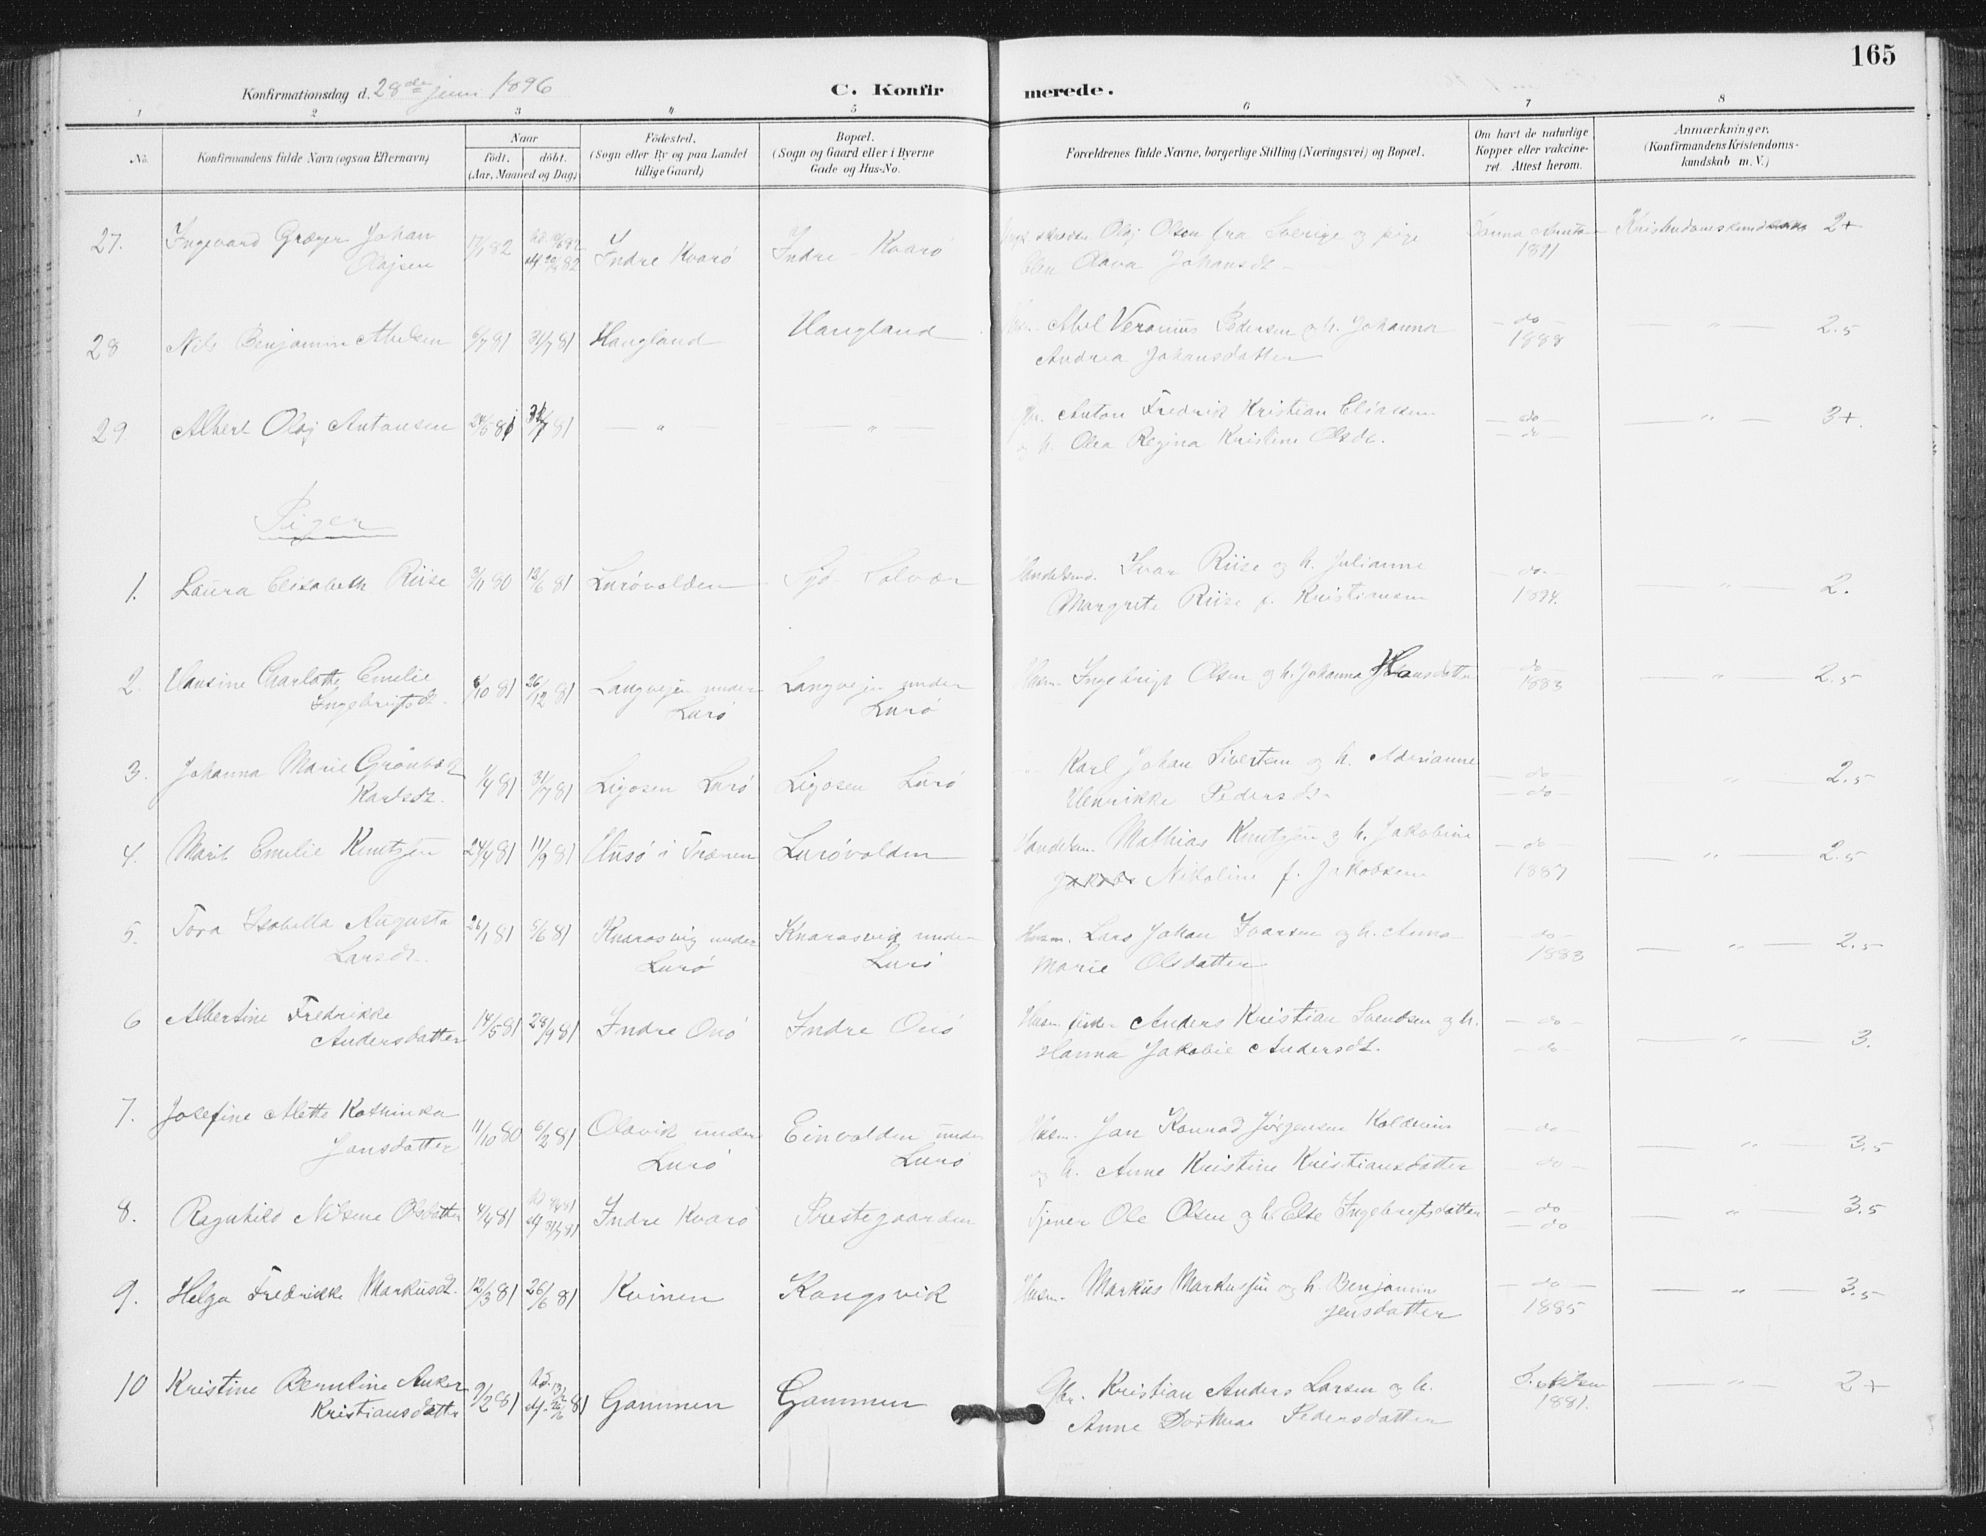 165
Konfirmationsdag d. 28de juni 1896
C. Konfirmerede.
1 2 3 4 5 6 7 8
No. Konfirmandens fulde Navn (ogsaa Efternavn) Naar født. døbt. (Aar, Maaned og Dag) Fødested. (Sogn eller By og paa Landet tillige Gaard) Bopæl. (Sogn og Gaard eller i Byerne Gade og Hus-No. Forældrenes fulde Navne, borgerlige Stilling (Næringsvei) og Bopæl. Om havt de naturlige Kopper eller vakcineret. Attest herom. Anmærkninger. (Konfirmandens Kristendomskundskab m. V.)
27. Ingevard Græger Johan Olajsen Indre Kvarø Indre Kvarø Olaj Olsen fra Sverige og pige Elen Olava Johansdt. 1891 Kristendomskundskab 2+
28 Nils Benjamin Abelsen 6/7 81 31/7 81 Haugland Haugland Abel Veronius Pedersen og h. Johanna Andrea Johansdatter do 1888 — " — 2.5
29 Albert Olaj Antonsen 24/5 81 31/7 81 — " — — " — Gbr. Anton Fredrik Kristian Eliassen og h. Olea Regina Kristine Olsdt. do do — " — 3+.
Piger
1. Laura Elisabeth Riise 3/11 80 12/6 81 Lurøvolden Syd-Solvær Handelsmd. Ivar Riise og h. Julianne Margrete Riise f. Kristiansen do 1894. — " — 2.
2. Hansine Charlotte Emelie Ingebrigtsdt. 8/10 81 26/12 81 Langvejen under Lurø Langvejen under Lurø Husm. Ingebrigt Olsen og h. Johanna Hansdatter do 1883 — " — 2.5
3. Johanna Marie Grønbæk Karlsdt. 1/4 81 31/7 81 Ligosen Lurø Ligosen Lurø Karl Johan Sivertsen og h. Adrianne Henrikke Pedersdt. do do — " — 2.5
4. Marit Emilie Knutzen 24/4 81 11/9 81 Husø i Trænen Lurøvolden Handelsm. Mathias Knutzen og h. Jakobine Nikoline f. Jakobsen do 1887 — " — 2.5
5. Tora Isabella Augusta Larsdt. 26/1 81 5/6 81 Knarosvig under Lurø Knarosvig under Lurø Husm. Lars Johan Ivarsen og h. Anna Marie Olsdatter do 1883 — " — 2.5
6 Albertine Fredrikke Andersdatter 14/5 81 28/9 81 Indre Onø Indre Onø Husm. Anders Kristian Svendsen og h. Hanna Jakobie Andersdt. do do — " — 3.
7. Josefine Alette Kathinka Jansdatter 11/10 80 6/2 81 Olavik under Lurø Einvolden under Lurø Husm. Jan Konrad Jørgensen og h. Anne Kristine Kristiansdatter do do — " — 3.5
8. Ragnhild Nilsine Olsdatter 4/4 81 Indre Kvarø Prestegaarden Tjener Ole Olsen og h. Else Ingebrigtsdatter do do — " — 3.5
9. Helga Fredrikke Markusdt. 12/3 81 26/6 81 Kvinen Kongsvik Husm. Markus Markussen og h. Benjamine Jensdatter do 1885 — " — 3.5
10 Kristine Berntine Anker Kristiansdatter 9/2 81 Gammen Gammen Gbr. Kristian Anders Larsen og h. Anne Dorthea Pedersdatter 1881. — " — 2+